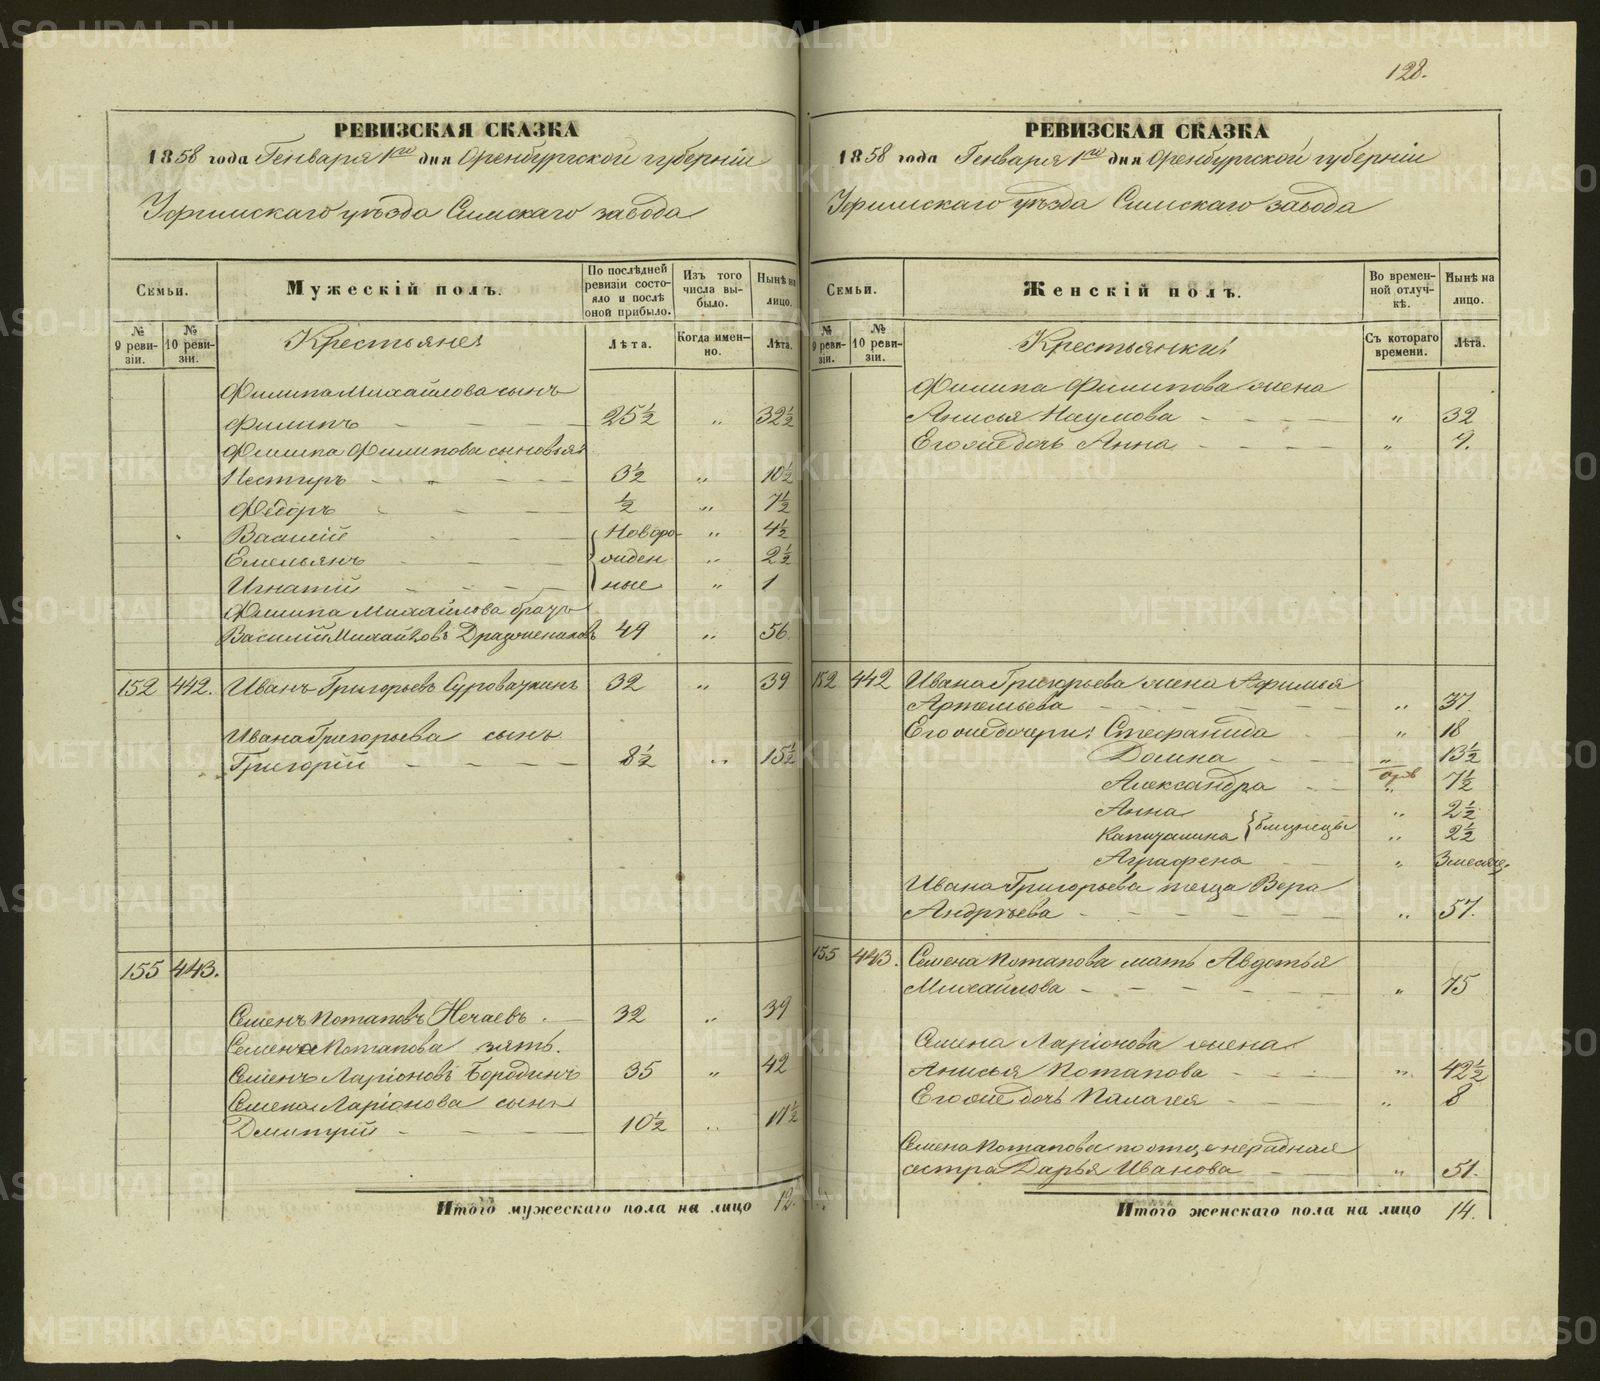 128.
РЕВИЗСКАЯ СКАЗКА
1858 года Генваря 1го дня Оренбургской губерніи
Уфимскаго уѣзда Симскаго завода
Семьи.
Мужескій полъ.
По послѣдней ревизіи состояло и послѣ оной прибыло.
Изъ того числа выбыло.
Нынѣ на лицо.
№ 9 ревизіи.
№ 10 ревизіи.
Крестьяне:
Лѣта.
Когда именно.
Лѣта.
Филипа Михайлова сынъ
Филипъ 25½ " 32½
Филипа Филипова сыновья:
Нестеръ 3½ " 10½
Фёдоръ ½ " 7½
Василій Новоро- " 4½
Емельянъ жден " 2½
Игнатій ные " 1
Филипа Михайлова братъ
Василій Михайловъ 49 " 56.
152 442. Иванъ Григорьевъ 32 " 39
Ивана Григорьева сынъ
Григорій 8½ " 15½
155 443.
Семенъ Потаповъ Нечаевъ. 32 " 39
Семена Потапова зять.
Семенъ Ларіоновъ Бородинъ 35 " 42
Семена Ларіонова сынъ
Дмитрій 10½ " 17½
Итого мужескаго пола на лицо 12.
РЕВИЗСКАЯ СКАЗКА
1858 года Генваря 1го дня Оренбургской губерніи
Уфимскаго уѣзда Симскаго завода
Семьи.
Женскій полъ.
Во временной отлучкѣ.
Нынѣ на лицо.
№ 9 ревизіи.
№ 10 ревизіи.
Крестьянки:
Съ котораго времени.
Лѣта.
Филипа Филипова жена
Анисья Наумова " 32
Его же дочь Анна " 9.
152 442 Ивана Григорьева жена Афимья
Артемьева " 37
Его же дочери: Стефанида " 18
Домна " 13½
Александра " 7½
Анна близнецы " 2½
Капиталина " 2½
Аграфена " 3 месяц.
Ивана Григорьева теща Вера
Андрѣева " 57.
155 443. Семена Потапова мать Авдотья
Михайлова " 75
Семена Ларіонова жена
Анисья Потапова " 42½
Его же дочь Палагея " 8
Семена Потапова по отцѣ неродная
сестра Дарья Иванова " 51.
Итого женскаго пола на лицо 14.
METRIKI.GASO-URAL.RU